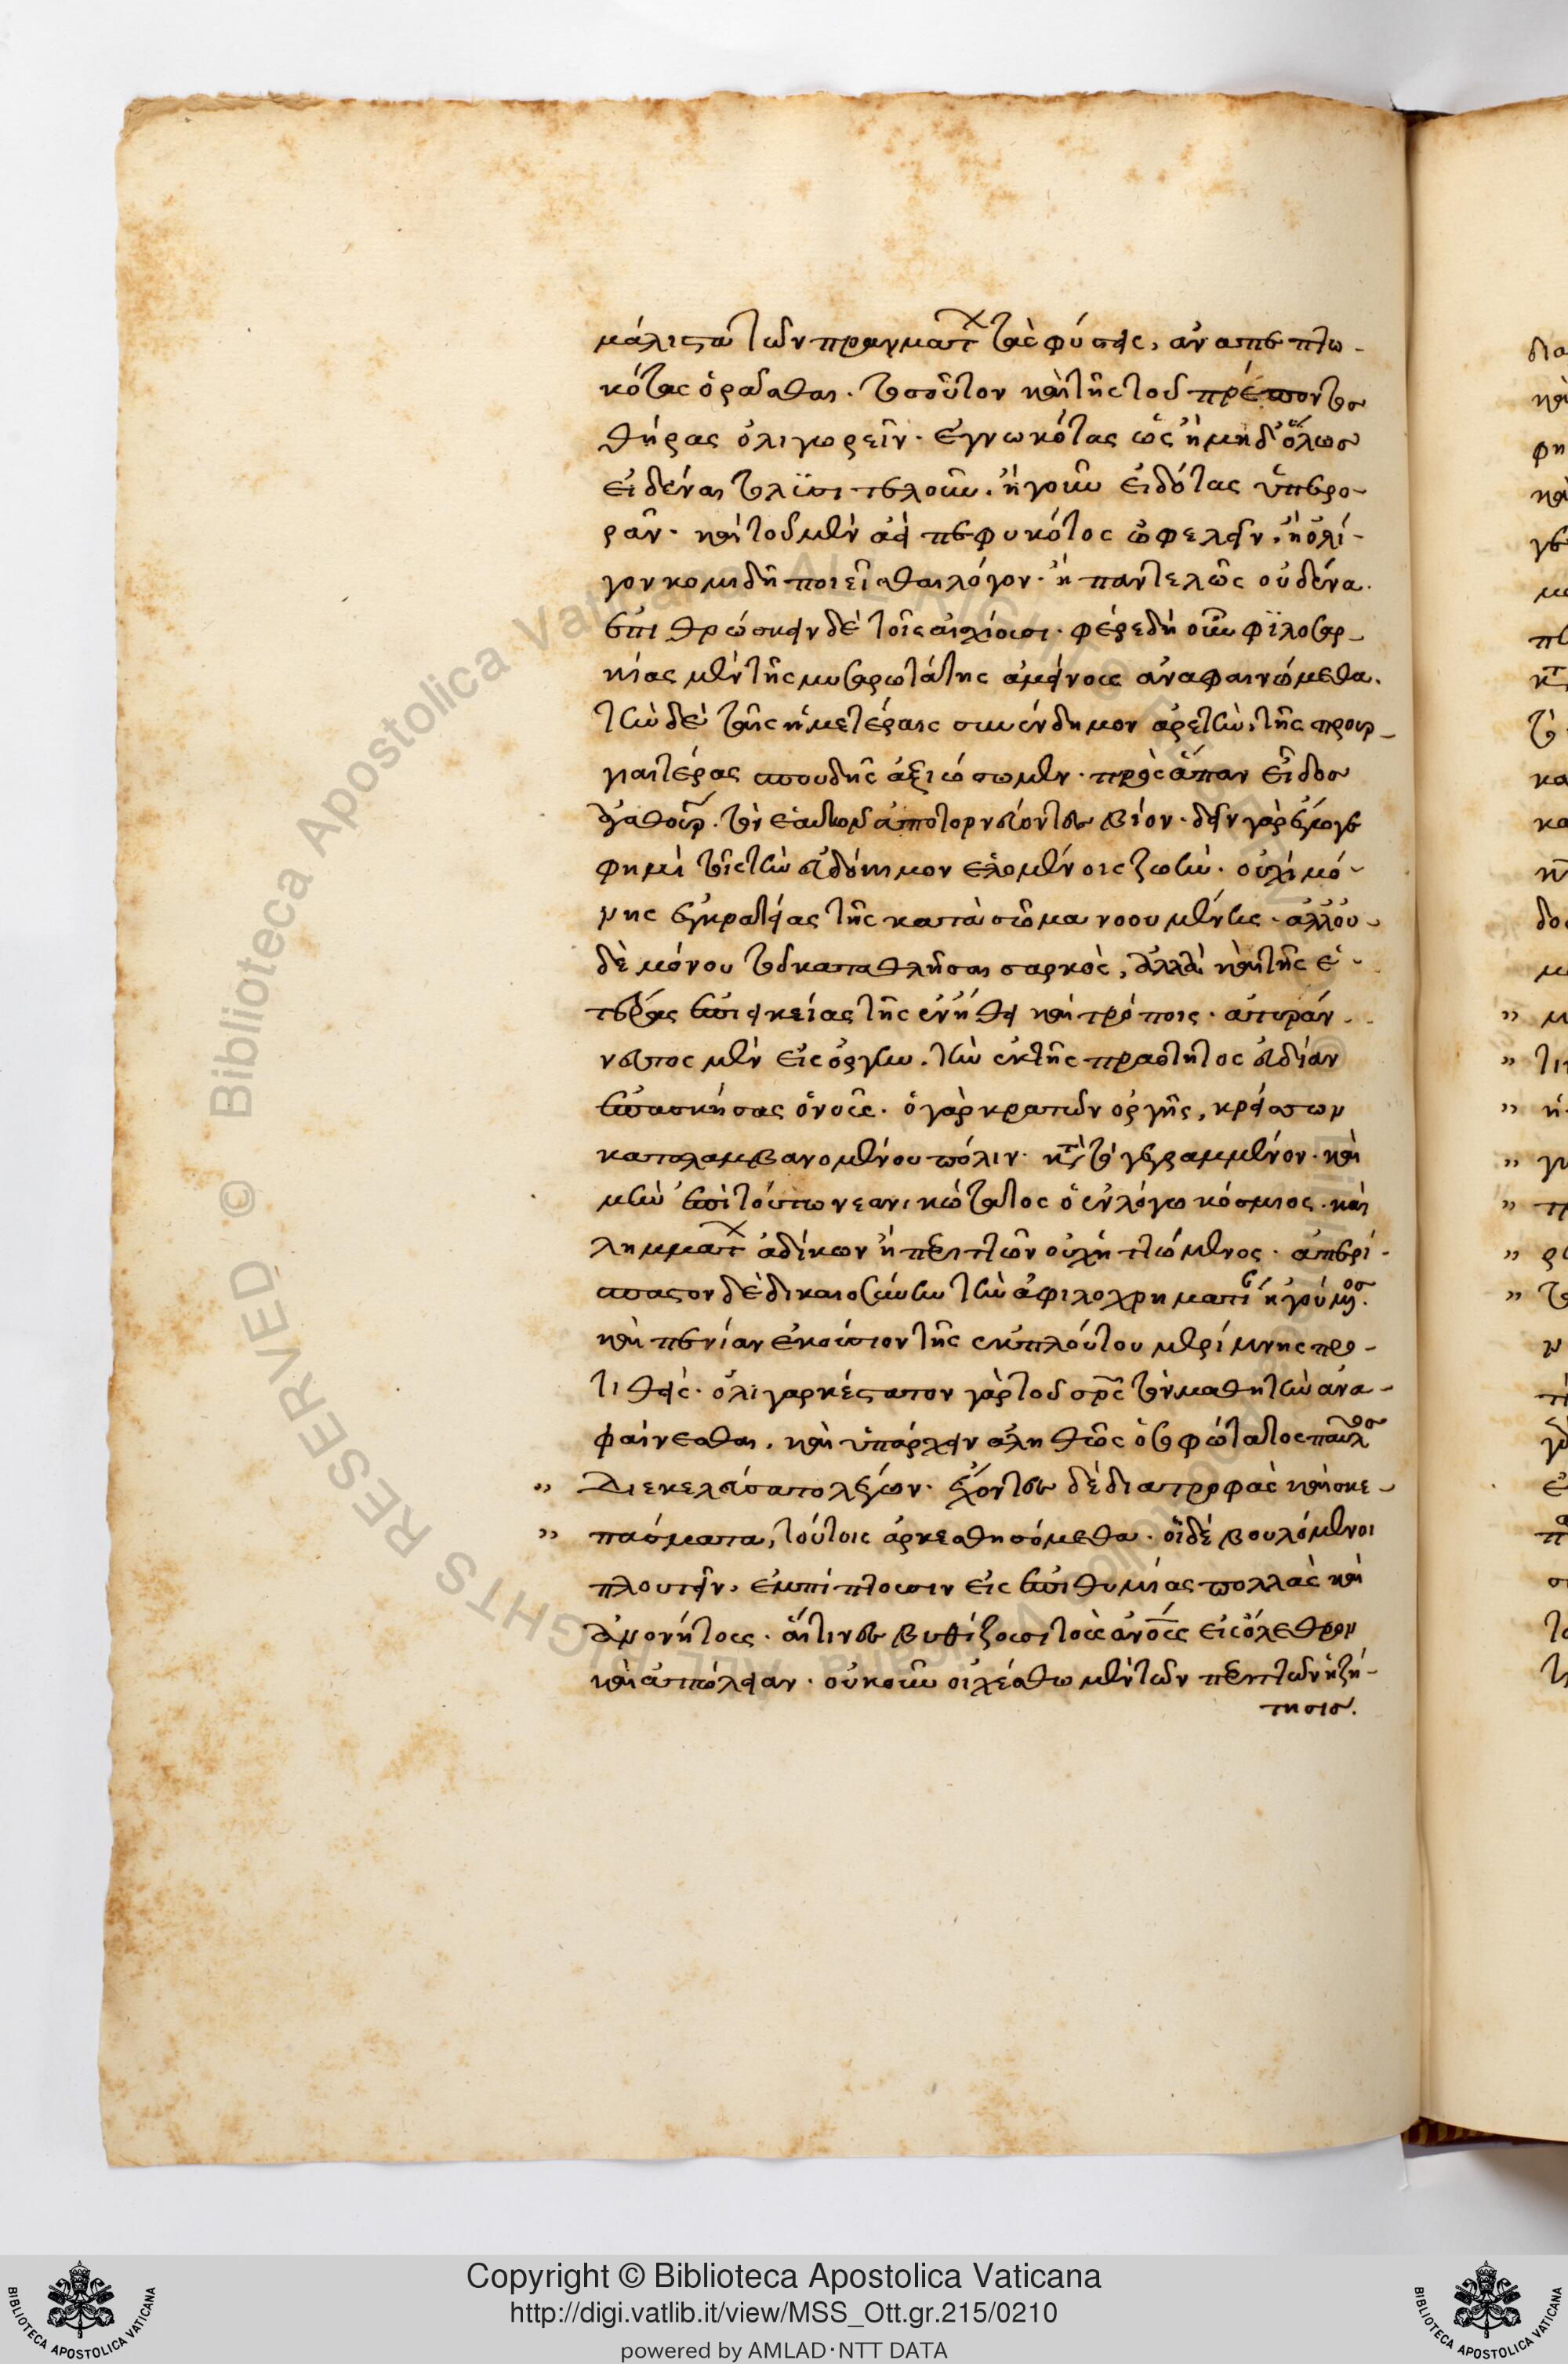 μάλιστα τῶν πραγμάτ τὰς φύσεις, ἀναπεπτω-
κότας ὁρᾶσθαι. τοσοῦτον καὶ τῆς τοῦ πρέποντος
θήρας ὀλιγωρεῖν. ἐγνωκότας ὡς ἢ μηδ' ὅλως
εἰδέναι τὸ λυσιτελοῦν. ἤγουν εἰδότας ὑπερο-
ρᾶν. καὶ τοῦ μὲν ἀεὶ πεφυκότος ὠφελεῖν, ἢ ὀλί-
γον κομιδῆ ποιεῖσθαι λόγον. ἢ παντελῶς οὐδένα.
ἐπιθρώσκειν δὲ τοῖς αἰσχίοσι. φέρε δὴ οὖν φιλο
νίας μὲν τῆς μυσαρωτάτης ἀμείνους ἀναφαινώμεθα.
τὴν δὲ ταῖς ἡμετέραις συνένδημον ἀρετὴν, τῆς προυρ-
γιαιτέρας σπουδῆς ἀξιώσωμεν. πρὸς ἅπαν εἶδος
ἀγαθουρ. τὸν ἑαυτῶν ἀποτορνεύοντες βίον. δεῖν γὰρ ἔγωγε
φημὶ τοῖς τὴν εὐδόκιμον ἑλομένοις ζωὴν. οὐχὶ μό-
νης ἐγκρατείας τῆς κατὰ σῶμα νοουμένης. ἀλλ' οὐ-
δὲ μόνου τοῦ καταθλῆσαι σαρκὸς, ἀλλὰ καὶ τῆς ἑ-
τέρας ἐπιεικείας τῆς ἐν ἤθει καὶ τρόποις. ἀτυράν-
νευτος μὲν εἰς ὀργὴν. τὴν ἐκ τῆς πραότητος εὐδίαν
ἐπασκήσας ὁ νοῦς. ὁ γὰρ κρατῶν ὀργῆς, κρείσσων
καταλαμβανομένου πόλιν. κτ τὸ γεγραμμένον. καὶ
μὴν ἐπὶ τούτω νεανικώτατος ὁ ἐν λόγω κόσμιος. καὶ
λημμάτ ἀδίκων ἢ περιττῶν οὐχ ἡττώμενος. ἀπερί-
σπαστον δὲ δικαιοσύνην τὴν ἀφιλοχρηματί ἡγούμος.
καὶ πενίαν ἑκούσιον τῆς ἐκ πλούτου μερίμνης προ-
τιθείς. ὀλιγαρκέστατον γὰρ τοῦ σρς τὸν μαθητὴν ἀνα-
φαίνεσθαι, καὶ ὑπάρχειν ἀληθῶς ὁ σοφώτατος παῦλος
» διεκελεύσατο λέγων. ἔχοντες δὲ διατροφὰς καὶ σκε-
» πάσματα, τούτοις ἀρκεσθησόμεθα. οἱ δὲ βουλόμενοι
πλουτεῖν, ἐμπίπτουσιν εἰς ἐπιθυμίας πολλὰς καὶ
ἀνονήτους. αἵτινες βυθίζουσι τοὺς ἀνους εἰς ὄλεθρον
καὶ ἀπώλειαν. οὐκοῦν οἰχέσθω μὲν τῶν περιττῶν ἡ ζή-
τησις.
Copyright © Biblioteca Apostolica Vaticana
http://digi.vatlib.it/view/MSS_Ott.gr.215/0210
powered by AMLAD·NTT DATA